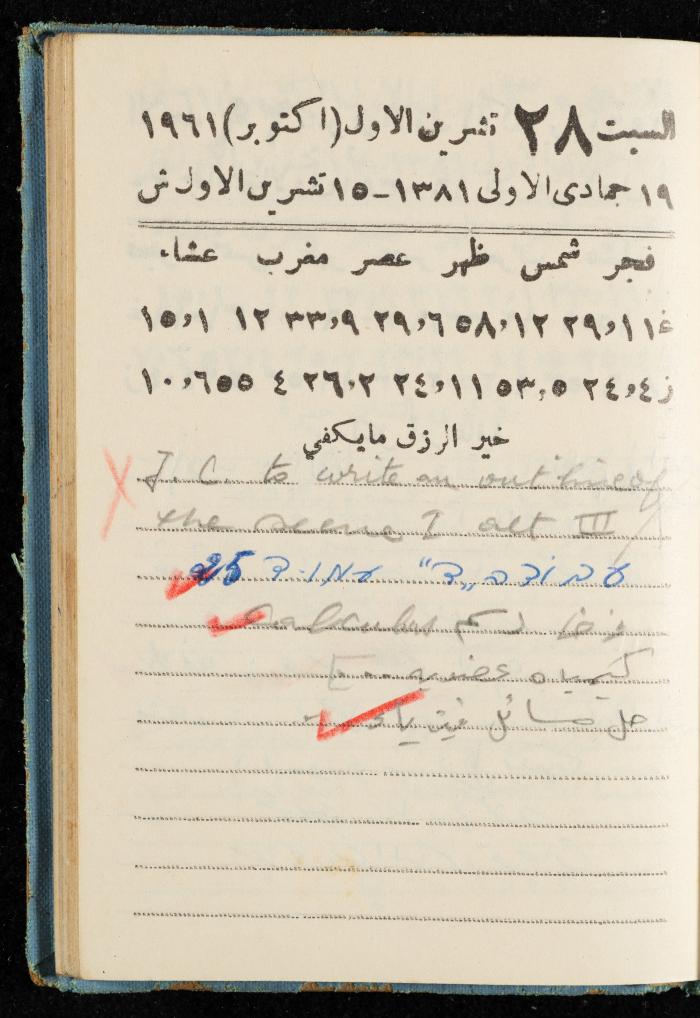 السبت ٢٨ تشرين الاول (اكتوبر) ١٩٦١
١٩ جمادى الاولى ١٣٨١ - ١٥ تشرين الاول ش
فجر شمس ظهر عصر مغرب عشاء
غ ١١,٢٩ ١٢,٥٨ ٦,٢٩ ٩,٣٣ ١٢ ١,١٥
ز ٤,٢٤ ٥,٥٣ ١١,٢٤ ٢,٢٦ ٤ ٥٥ ٦,١٠
خير الرزق مايكفي
J. C. to write an outline of
the scene I act III
עבודה „ד" עמוד 25
Calculus
كيمياء عضوية
حل مسائل فيزياء